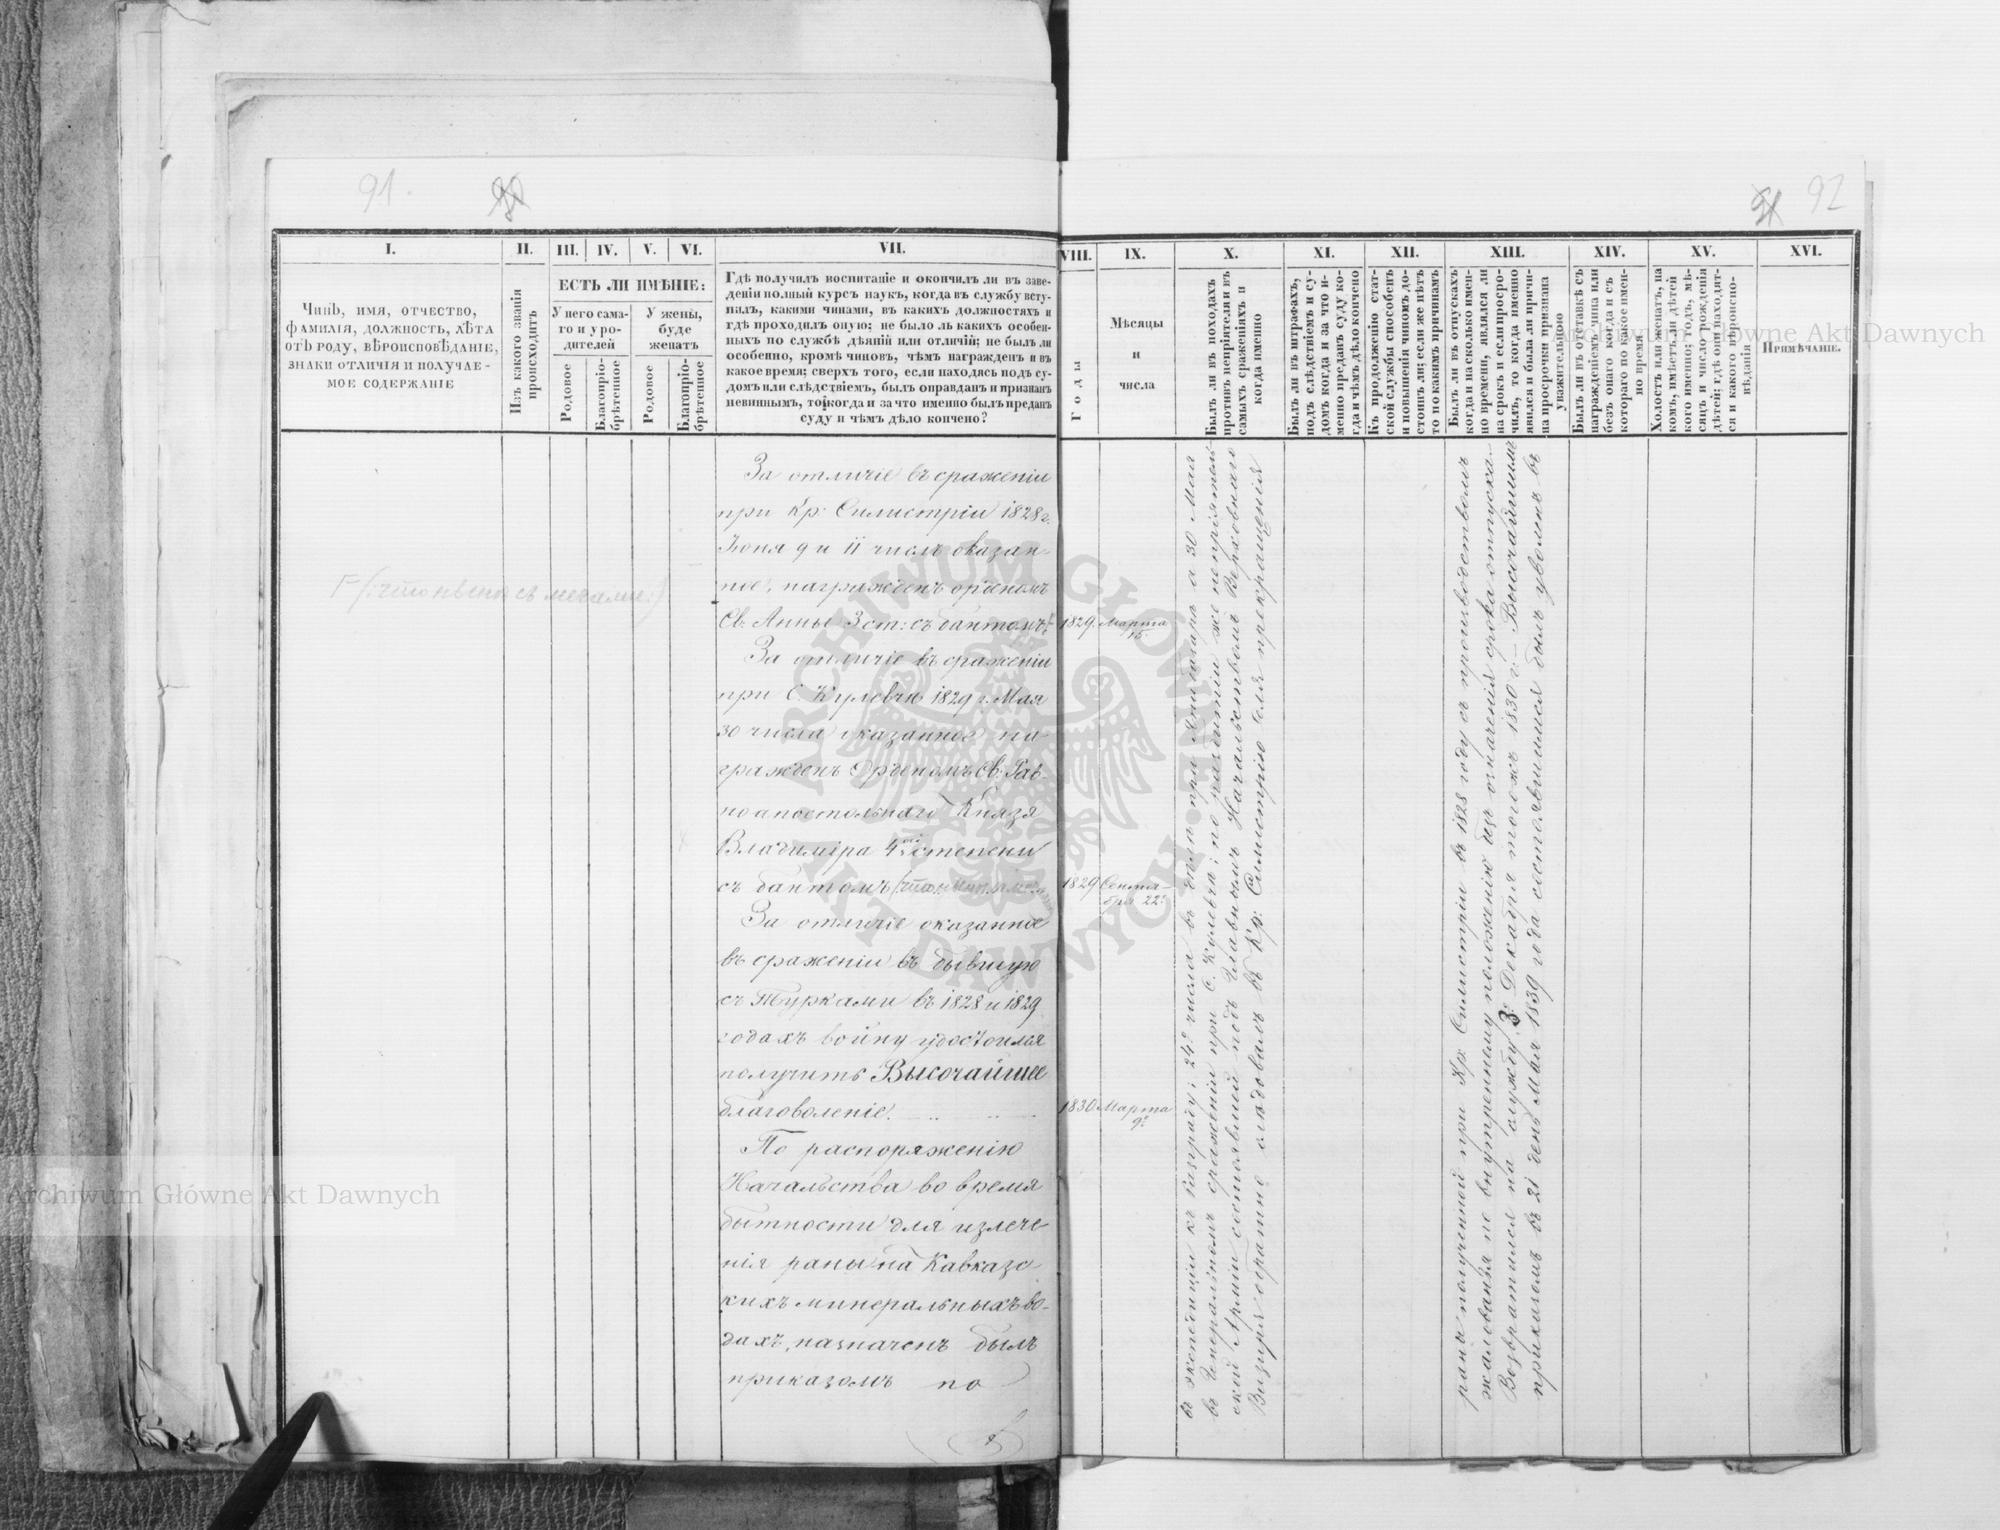 91.
92
I.
II.
III.
IV.
V.
VI.
VII.
VIII.
IX.
X.
XI.
XII.
XIII.
XIV.
XV.
XVI.
Чинъ, имя, отчество,
фамилія, должность, лѣта
отъ роду, вѣроисповѣданіе,
знаки отличія и получае-
мое содержаніе
Изъ какого званія
происходитъ
ЕСТЬ ЛИ ИМѢНІЕ:
У него сама-
го и у ро-
дителей
У жены,
буде
женатъ
Родовое
Благопріо-
брѣтенное
Родовое
Благопріо-
брѣтенное
Гдѣ получилъ воспитаніе и окончилъ ли въ заве-
деніи полный курсъ наукъ, когда въ службу всту-
пилъ, какими чинами, въ какихъ должностяхъ и
гдѣ проходилъ оную; не было ль какихъ особен-
ныхъ по службѣ дѣяній или отличій; не былъ ли
особенно, кромѣ чиновъ, чѣмъ награжденъ и въ
какое время; сверхъ того, если находясь подъ су-
домъ или слѣдствіемъ, былъ оправданъ и признанъ
невиннымъ, то когда и за что именно былъ преданъ
суду и чѣмъ дѣло кончено?
Годы
Мѣсяцы
и
числа
Былъ ли въ походахъ
противъ непріятеля и въ
самыхъ сраженіяхъ и
когда именно
Былъ ли въ штрафахъ,
подъ слѣдствіемъ и су-
домъ когда и за что и-
менно преданъ суду ко-
гда и чѣмъ дѣло кончено
Къ продолженію стат-
ской службы способенъ
и повышенія чиномъ до-
стоинъ ли; если же нѣтъ
то по какимъ причинамъ
Былъ ли въ отпускахъ
когда и на сколько имен-
но времени, являлся ли
на срокъ и если просро-
чилъ, то когда именно
явился и была ли причи-
на просрочки признана
уважительною
Былъ ли въ отставкѣ съ
награжденіемъ чина или
безъ онаго когда и съ
котораго по какое имен-
но время
Холостъ или женатъ, на
комъ, имѣетъ ли дѣтей
кого именно; годъ, мѣ-
сяцъ и число рожденія
дѣтей; гдѣ они находят-
ся и какого вѣроиспо-
вѣданія
Примѣчаніе.
За отличіе въ сраженіи
при Кр: Силистріи 1828 г.
Іюня 9 и 11 числъ оказан-
ное, награжденъ орденомъ
Св: Анны 3 ст: съ бантомъ
1829. Марта
15.
За отличіе въ сраженіи
при С. Кулевчѣ 1829 г. Мая
30 числа оказанное на-
гражденъ Орденомъ Св: Рав-
ноапостольнаго Князя
Владиміра 4й степени
съ бантомъ
1829 Сентя-
бря 22.
За отличіе оказанное
въ сраженіи въ бывшую
съ Турками въ 1828 и 1829
годахъ войну удостоился
получить Высочайшее
благоволеніе.
1830 Марта
9.
По распоряженію
Начальства во время
бытности для излече-
нія раны на Кавказс-
кихъ минеральныхъ во-
дахъ, назначенъ былъ
приказомъ по
въ экспедиціи къ Разграду; 24го числа въ дѣлѣ при а 30 Мая
въ Генеральномъ сраженіи при С. Кулевчѣ; по разбитіи же непріятель-
ской Арміи состоявшей подъ Главнымъ Начальствомъ Верховнаго
Визиря обратно слѣдовалъ въ Кр: Силистрію для прекращенія
раніи полученной при Кр: Силистріи въ 1828 году съ производствомъ
жалованья по внутреннему положенію безъ означенія срока отпуска.
Возвратился на службу 3 Декабря того жъ 1830 г. Высочайшимъ
приказомъ въ 21 день Мая 1839 года состоявшимся былъ уволенъ въ
Archiwum Główne Akt Dawnych
Archiwum Główne Akt Dawnych
ARCHIWUM GŁÓWNE AKT DAWNYCH